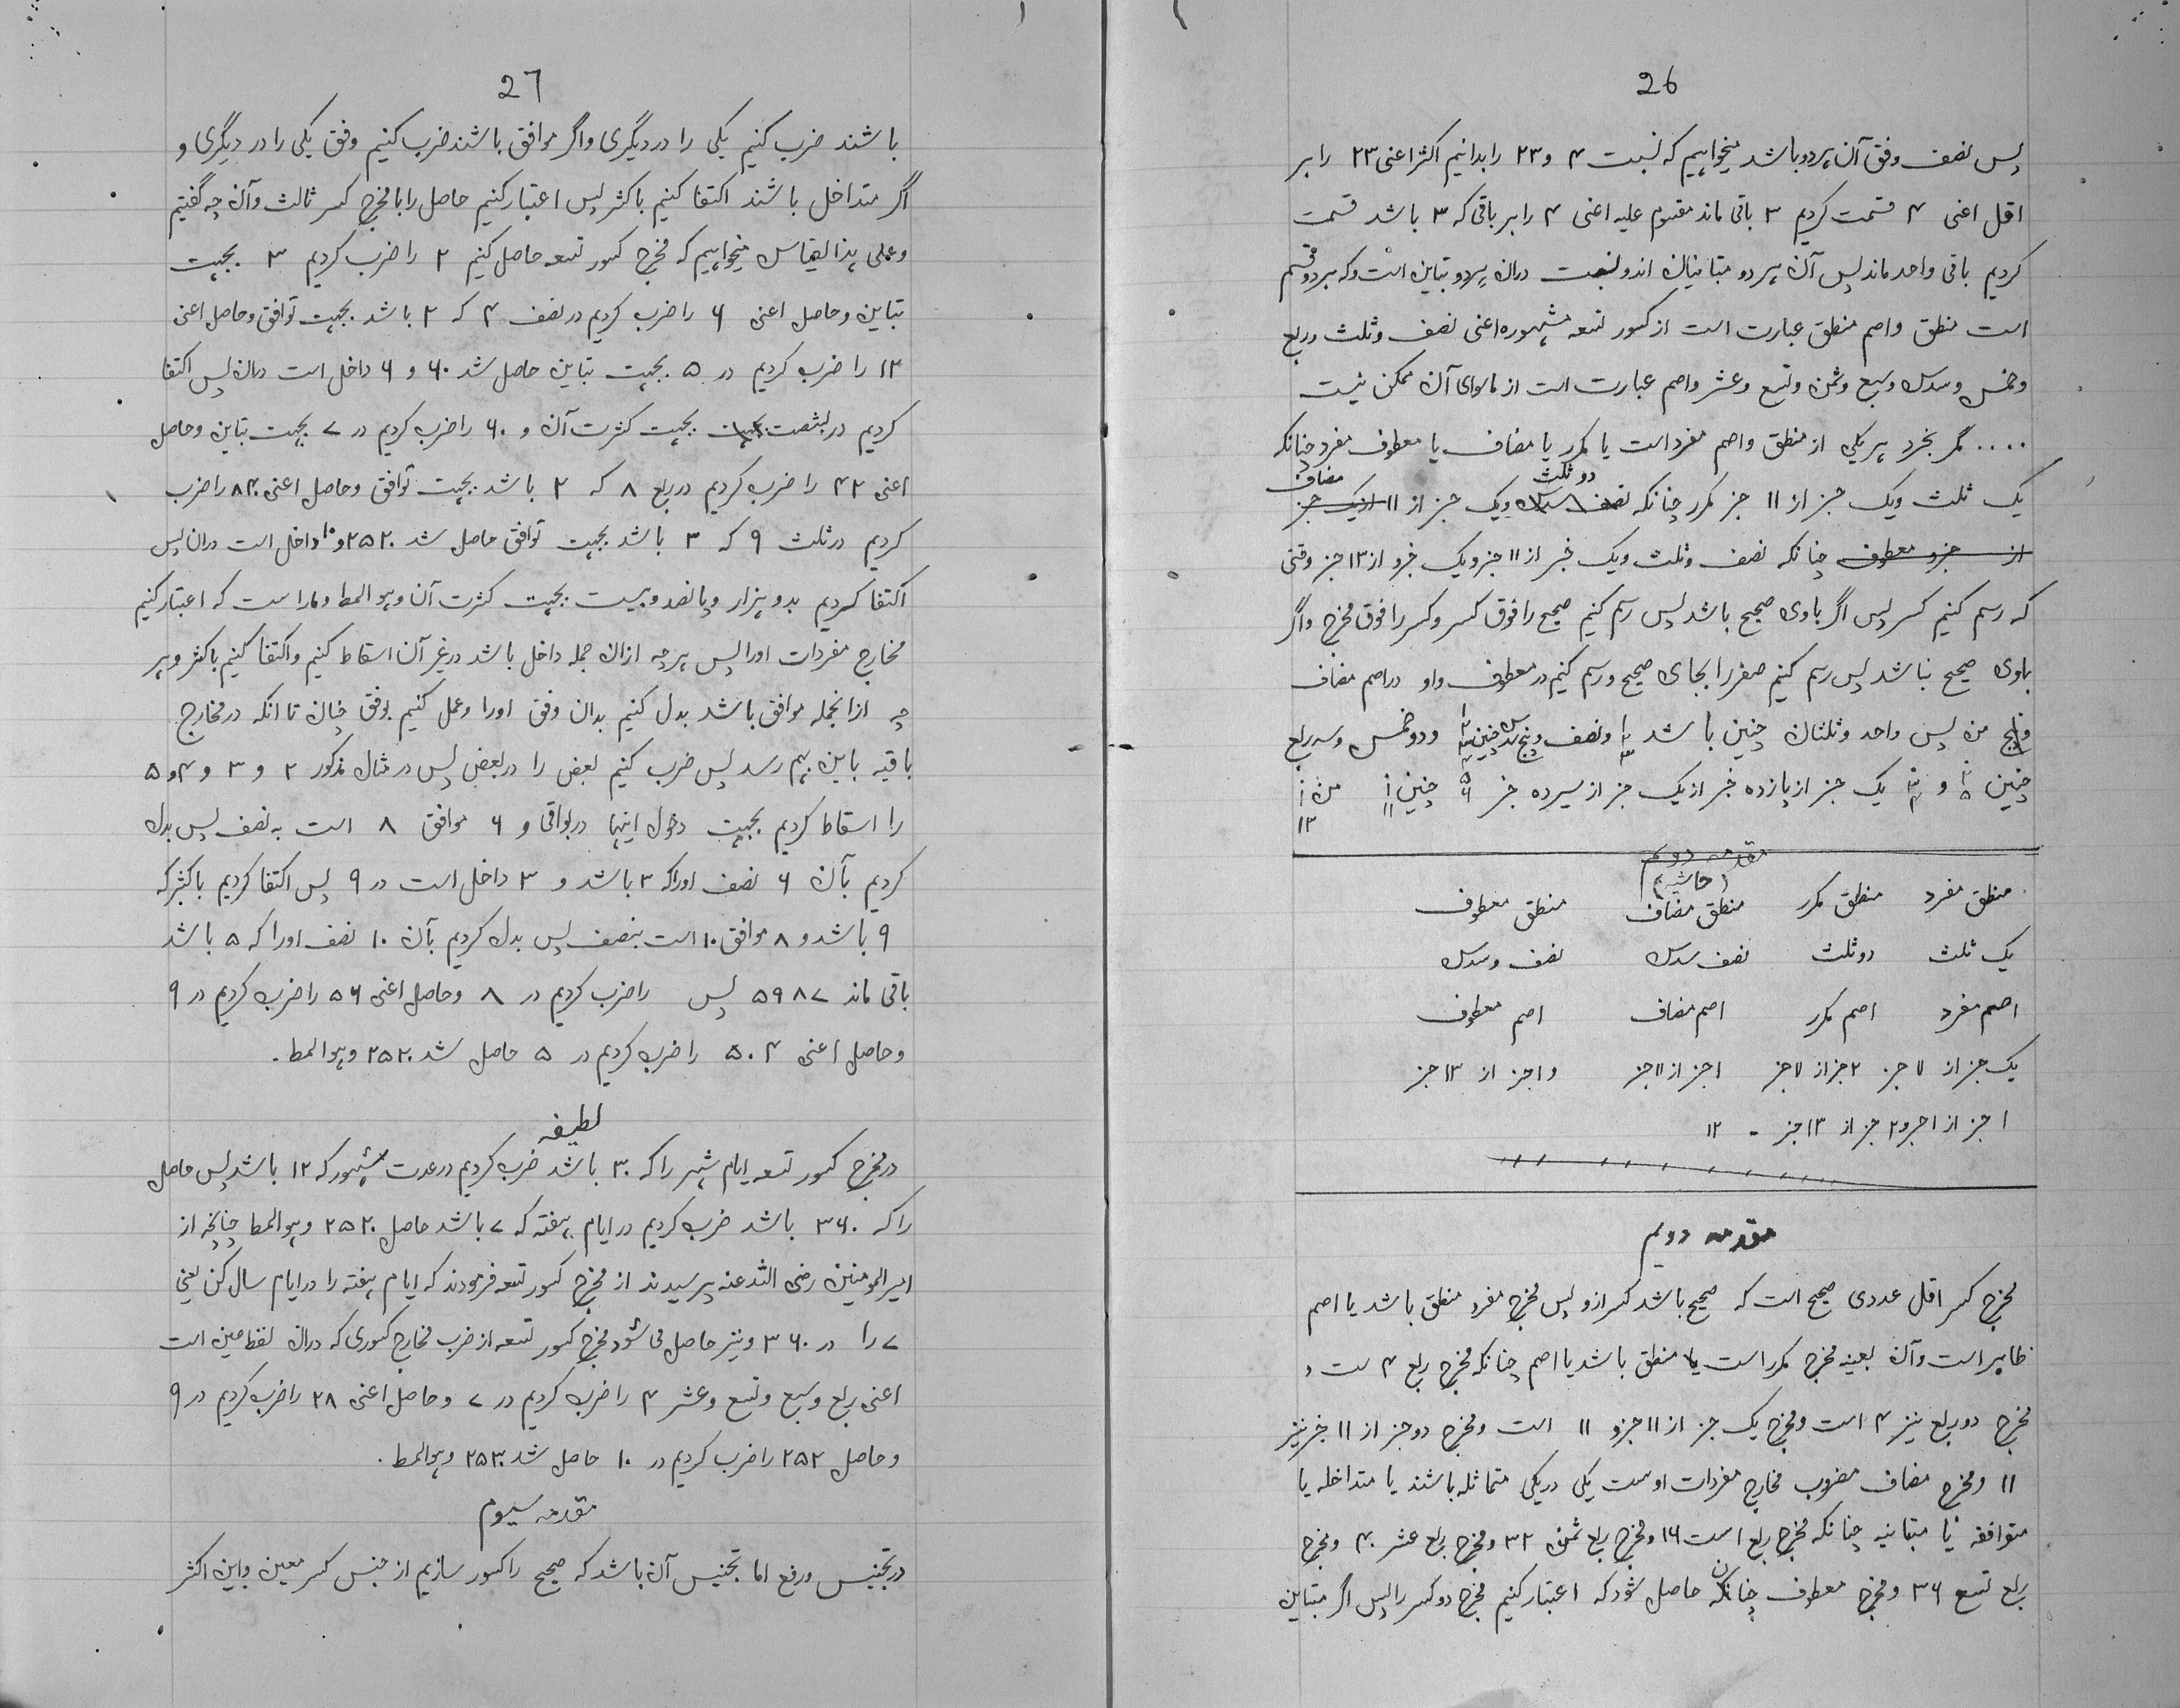 26
پس نصف وفق آن ہردو باشد میخواہیم کہ نسبت ۴ و ۲۳ را بدانیم اکثر اعنی ۲۳ را بر
اقل اعنی ۴ قسمت کردیم ۳ باقی ماند مقسوم علیہ اعنی ۴ را بر باقی کہ ۳ باشد قسمت
کردیم باقی واحد ماند پس آن ہر دو متباینان اند و نسبت دران ہردو تباین است و کہ بر دو قسم
است منطق واصم منطق عبارت است از کسور تسعہ مشہورہ اعنی نصف و ثلث و ربع
وخمس وسدس وسبع وثمن وتسع وعشر واصم عبارت است از ماسوای آن ممکن نیست
.... مگر بخرد ہر یکی از منطق واصم مفرد است یا مکرر یا مضاف یا معطوف مفرد چنانکہ
یک ثلث ویک جز از ۱۱ جز مکرر چنانکہ دو ثلث ویک جز از ۱۱ مضاف
از جزو معطوف چنانکہ نصف وثلث ویک جز از ۱۱ جز ویک جزو از ۱۳ جز وقتی
کہ رسم کنیم کسر پس اگر باوی صحیح باشد پس رسم کنیم صحیح را فوق کسر وکسر را فوق مخرج واگر
باوی صحیح نباشد پس رسم کنیم صفر را بجای صحیح ورسم کنیم در معطوف واو در اصم مضاف
من پس واحد وثلثان چنین باشد ونصف وپنج سدس چنین ودوخمس وسہ ربع
چنین و یک جز از یازدہ جز از یک جز از سیزدہ جز چنین ۱ ۱۱ من ۱ ۱۳
مقدمہ دویم
(حاشیہ)
منطق مفرد منطق مکرر منطق مضاف منطق معطوف
یک ثلث دو ثلث نصف سدس نصف وسدس
اصم مفرد اصم مکرر اصم مضاف اصم معطوف
یک جز از ۱۱ جز ۲ جز از ۱۱ جز ۱ جز از ۱۱ جز و ۱ جز از ۱۳ جز
۱ جز از ۱ جز و ۲ جز از ۱۳ جز - ۱۲
مقدمہ دویم
مخرج کسر اقل عددی صحیح است کہ صحیح باشد کسر ازو پس مخرج مفرد منطق باشد یا اصم
ظاہر است وآن بعینہ مخرج مکرر است یا منطق باشد یا اصم چنانکہ مخرج ربع ۴ ست و
مخرج دو ربع نیز ۴ است ومخرج یک جز از ۱۱ جزو ۱۱ است ومخرج دو جز از ۱۱ جز نیز
۱۱ ومخرج مضاف مضروب مخارج مفردات اوست یکی در یکی متماثلہ باشند یا متداخلہ یا
متوافقہ یا متباینہ چنانکہ مخرج ربع است ۱۶ ومخرج ربع ثمن ۳۲ ومخرج ربع عشر ۴۰ ومخرج
ربع تسع ۳۶ ومخرج معطوف چنان حاصل شود کہ اعتبار کنیم مخرج دو کسر را پس اگر متباین
27
باشند ضرب کنیم یکی را در دیگری واگر موافق باشند ضرب کنیم وفق یکی را در دیگری و
اگر متداخل باشند اکتفا کنیم باکثر پس اعتبار کنیم حاصل را با مخرج کسر ثالث وآن چہ گفتیم
وعلی ہذا القیاس میخواہیم کہ مخرج کسور تسعہ حاصل کنیم ۲ را ضرب کردیم ۳ بجہت
تباین وحاصل اعنی ۶ را ضرب کردیم در نصف ۴ کہ ۲ باشد بجہت توافق وحاصل اعنی
۱۲ را ضرب کردیم در ۵ بجہت تباین حاصل شد ۶۰ و ۶ داخل است دران پس اکتفا
کردیم در بشصت بجہت کثرت آن و ۶۰ را ضرب کردیم در ۷ بجہت تباین وحاصل
اعنی ۴۲ را ضرب کردیم در ربع ۸ کہ ۲ باشد بجہت توافق وحاصل اعنی ۸۴۰ را ضرب
کردیم در ثلث ۹ کہ ۳ باشد بجہت توافق حاصل شد ۲۵۲۰ و ۱۰ داخل است دران پس
اکتفا کردیم بدو ہزار وپانصد وبیست بجہت کثرت آن وہو المط وماراست کہ اعتبار کنیم
مخارج مفردات اورا پس ہرچہ ازان جملہ داخل باشد در غیر آن اسقاط کنیم واکتفا کنیم باکثر وہر
چہ ازانجملہ موافق باشد بدل کنیم بدان وفق اورا وعمل کنیم بوفق چنان تا آنکہ در مخارج
باقیہ باین بہم رسد پس ضرب کنیم بعض را در بعض پس در مثال مذکور ۲ و ۳ و ۴ و ۵
را اسقاط کردیم بجہت دخول اینہا در بواقی و ۶ موافق ۸ است بہ نصف پس بدل
کردیم بآن ۶ نصف اورا کہ ۳ باشد و ۳ داخل است در ۹ پس اکتفا کردیم باکثر کہ
۹ باشد و ۸ موافق ۱۰ است بنصف پس بدل کردیم بآن ۱۰ نصف اورا کہ ۵ باشد
باقی ماند ۵۹۸۷ پس را ضرب کردیم در ۸ وحاصل اعنی ۵۶ را ضرب کردیم در ۹
وحاصل اعنی ۵۰۴ را ضرب کردیم در ۵ حاصل شد ۲۵۲۰ وہو المط.
لطیفہ
در مخرج کسور تسعہ ایام شہر را کہ ۳۰ باشد ضرب کردیم در عدت شہور کہ ۱۲ باشد پس حاصل
را کہ ۳۶۰ باشد ضرب کردیم در ایام ہفتہ کہ ۷ باشد حاصل ۲۵۲۰ وہو المط چنانچہ از
امیر المومنین رضی اللہ عنہ پرسیدند از مخرج کسور تسعہ فرمودند کہ ایام ہفتہ را در ایام سال کن یعنی
۷ را در ۳۶۰ ونیز حاصل می شود مخرج کسور تسعہ از ضرب مخارج کسوری کہ دران لفظ عین است
اعنی ربع وسبع وتسع وعشر ۴ را ضرب کردیم در ۷ وحاصل اعنی ۲۸ را ضرب کردیم در ۹
وحاصل ۲۵۲ را ضرب کردیم در ۱۰ حاصل شد ۲۵۲۰ وہو المط.
مقدمہ سیوم
در تجنیس ورفع اما تجنیس آن باشد کہ صحیح را کسور سازیم از جنس کسر معین واین اکثر